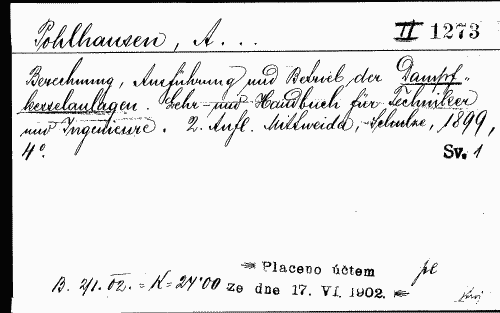 Pohlhausen, A. ... II 1273
Berechnung, Ausführung und Betrieb der Dampf-
kesselanlagen. Lehr- und Handbuch für Techniker
und Ingenieure. 2. Aufl. Mittweida, Schulze, 1899,
4°. Sv. 1
Placeno účtem
B. 2/1. 02. = K = 24·00 ze dne 17. VI. 1902.